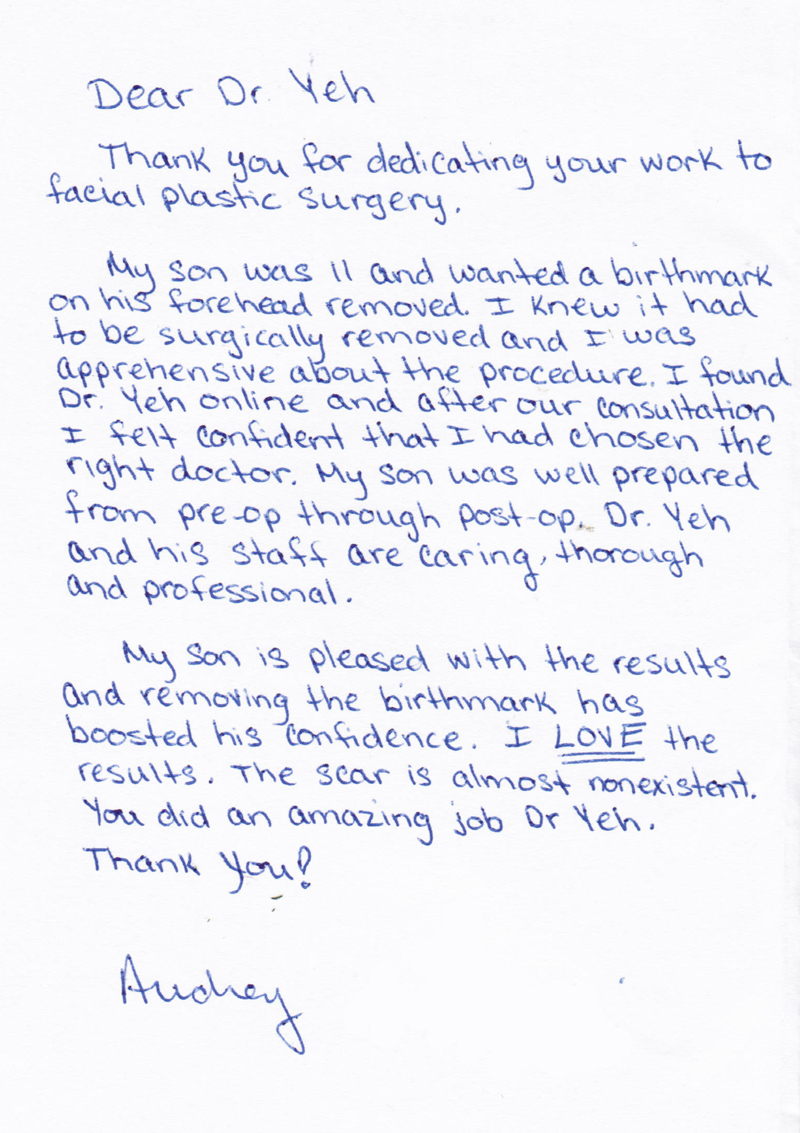 Dear Dr. Yeh
Thank you for dedicating your work to
facial plastic surgery.
My son was 11 and wanted a birthmark
on his forehead removed. I knew it had
to be surgically removed and I was
apprehensive about the procedure. I found
Dr. Yeh online and after our consultation
I felt confident that I had chosen the
right doctor. My son was well prepared
from pre-op through post-op. Dr. Yeh
and his staff are caring, thorough
and professional.
My son is pleased with the results
and removing the birthmark has
boosted his confidence. I LOVE the
results. The scar is almost nonexistent.
You did an amazing job Dr Yeh.
Thank you!
Audrey